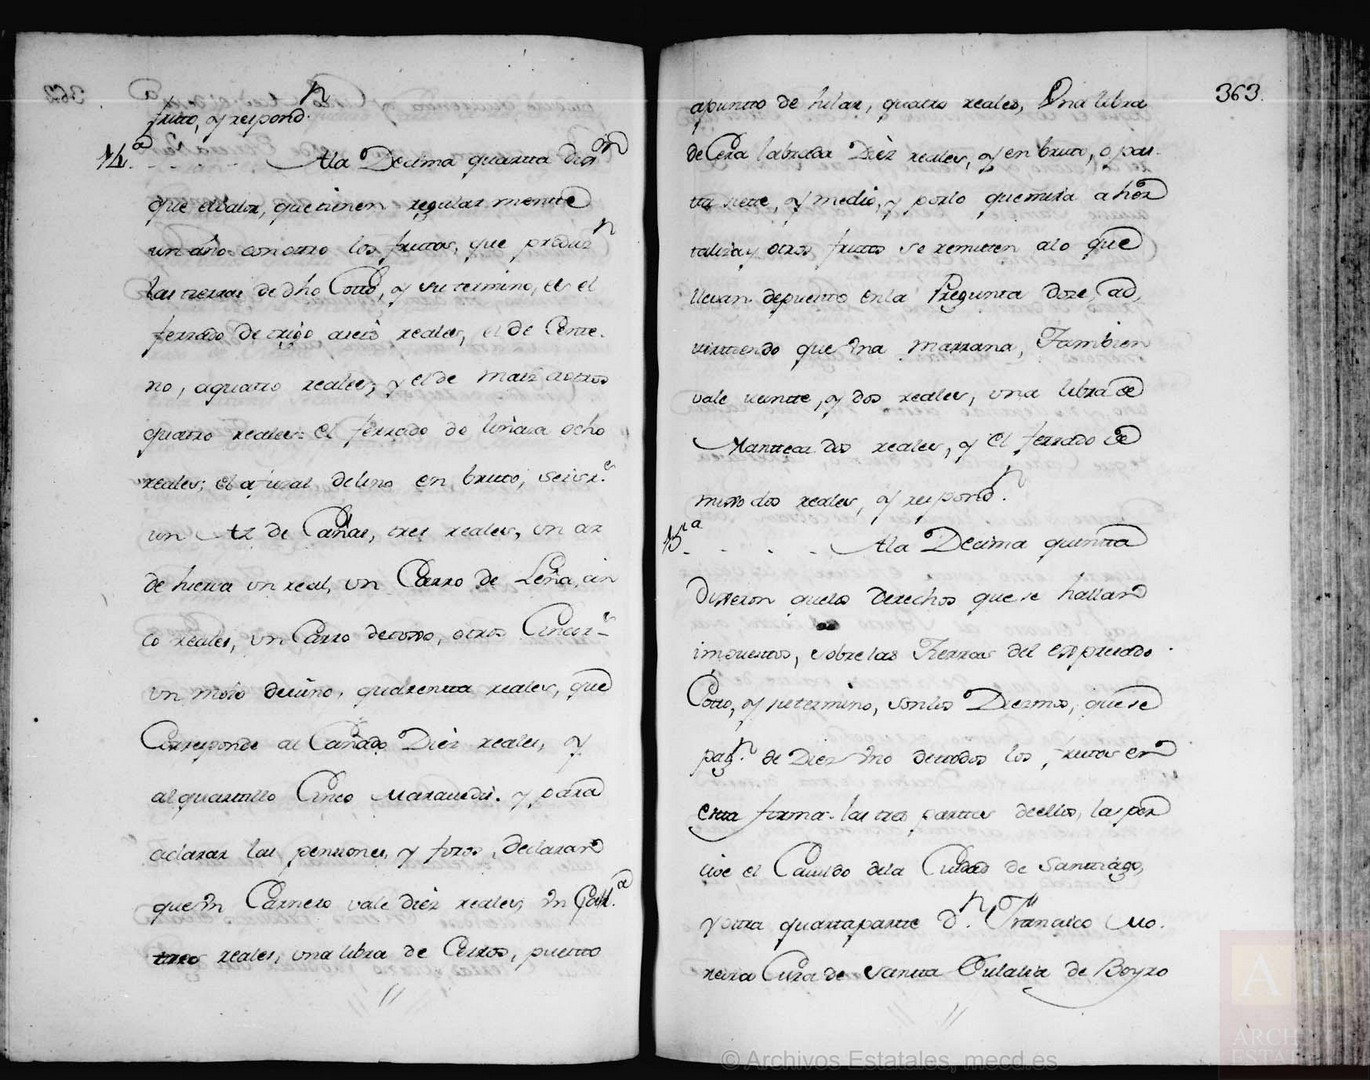 frutto, y respond.n
14.a Ala Decima quartta dijn.
que el valor, que tienen regular mentte
un año con otro los frutos, que produz.n
las tierras de dho Cotto, y su termino, es el
ferrado de trigo a seis reales, el de Cente-
no, a quatro reales, y el de maiz a otros
quatro reales: el ferrado de linaza ocho
reales; el afusal de lino en brutto, seis r.s
un Az de Cañas, tres reales, un az
de hierva un real, un Carro de Leña, cin
co reales, un Carro de tojo, otros Cinco r.s
un moio de vino, quarentta reales, que
Corresponde al Cañado Diez reales, y
al quartillo Cinco maravedis. y para
aclarar las pensiones, y foros, declaran
que un Carnero vale diez reales, un Gall.a
tres reales, una libra de Cerros, puestto
363.
apuntto de hilar, quatro reales, Una libra
de Cera labrada Diez reales, y en brutto, o pas-
tta siette, y medio, y por lo que mira a hor
taliza y otros fruttos se remiten alo que
llevan depuesto en la Pregunta doze, ad,
virttiendo que una marrana, Tambien
vale veintte, y dos reales, una libra de
Mantteca dos reales, y el ferrado de
mijo dos reales, y respond.n
15.a Ala Decima quintta
Dijeron que los Derechos que se hallan
impuestos, sobre las Tierras del expresado
Cotto, y su termino, son los Diezmos, que se
pag.n de Diez Uno de todos los frutos en
estta forma. las tres parttes de ellos, las per
cive el Cavildo dela Ciudad de Santtiago,
y otra quartta partte D.n Fran.co Mo-
reira Cura de Santta Eulalia de Boyro
© Archivos Estatales, mecd.es